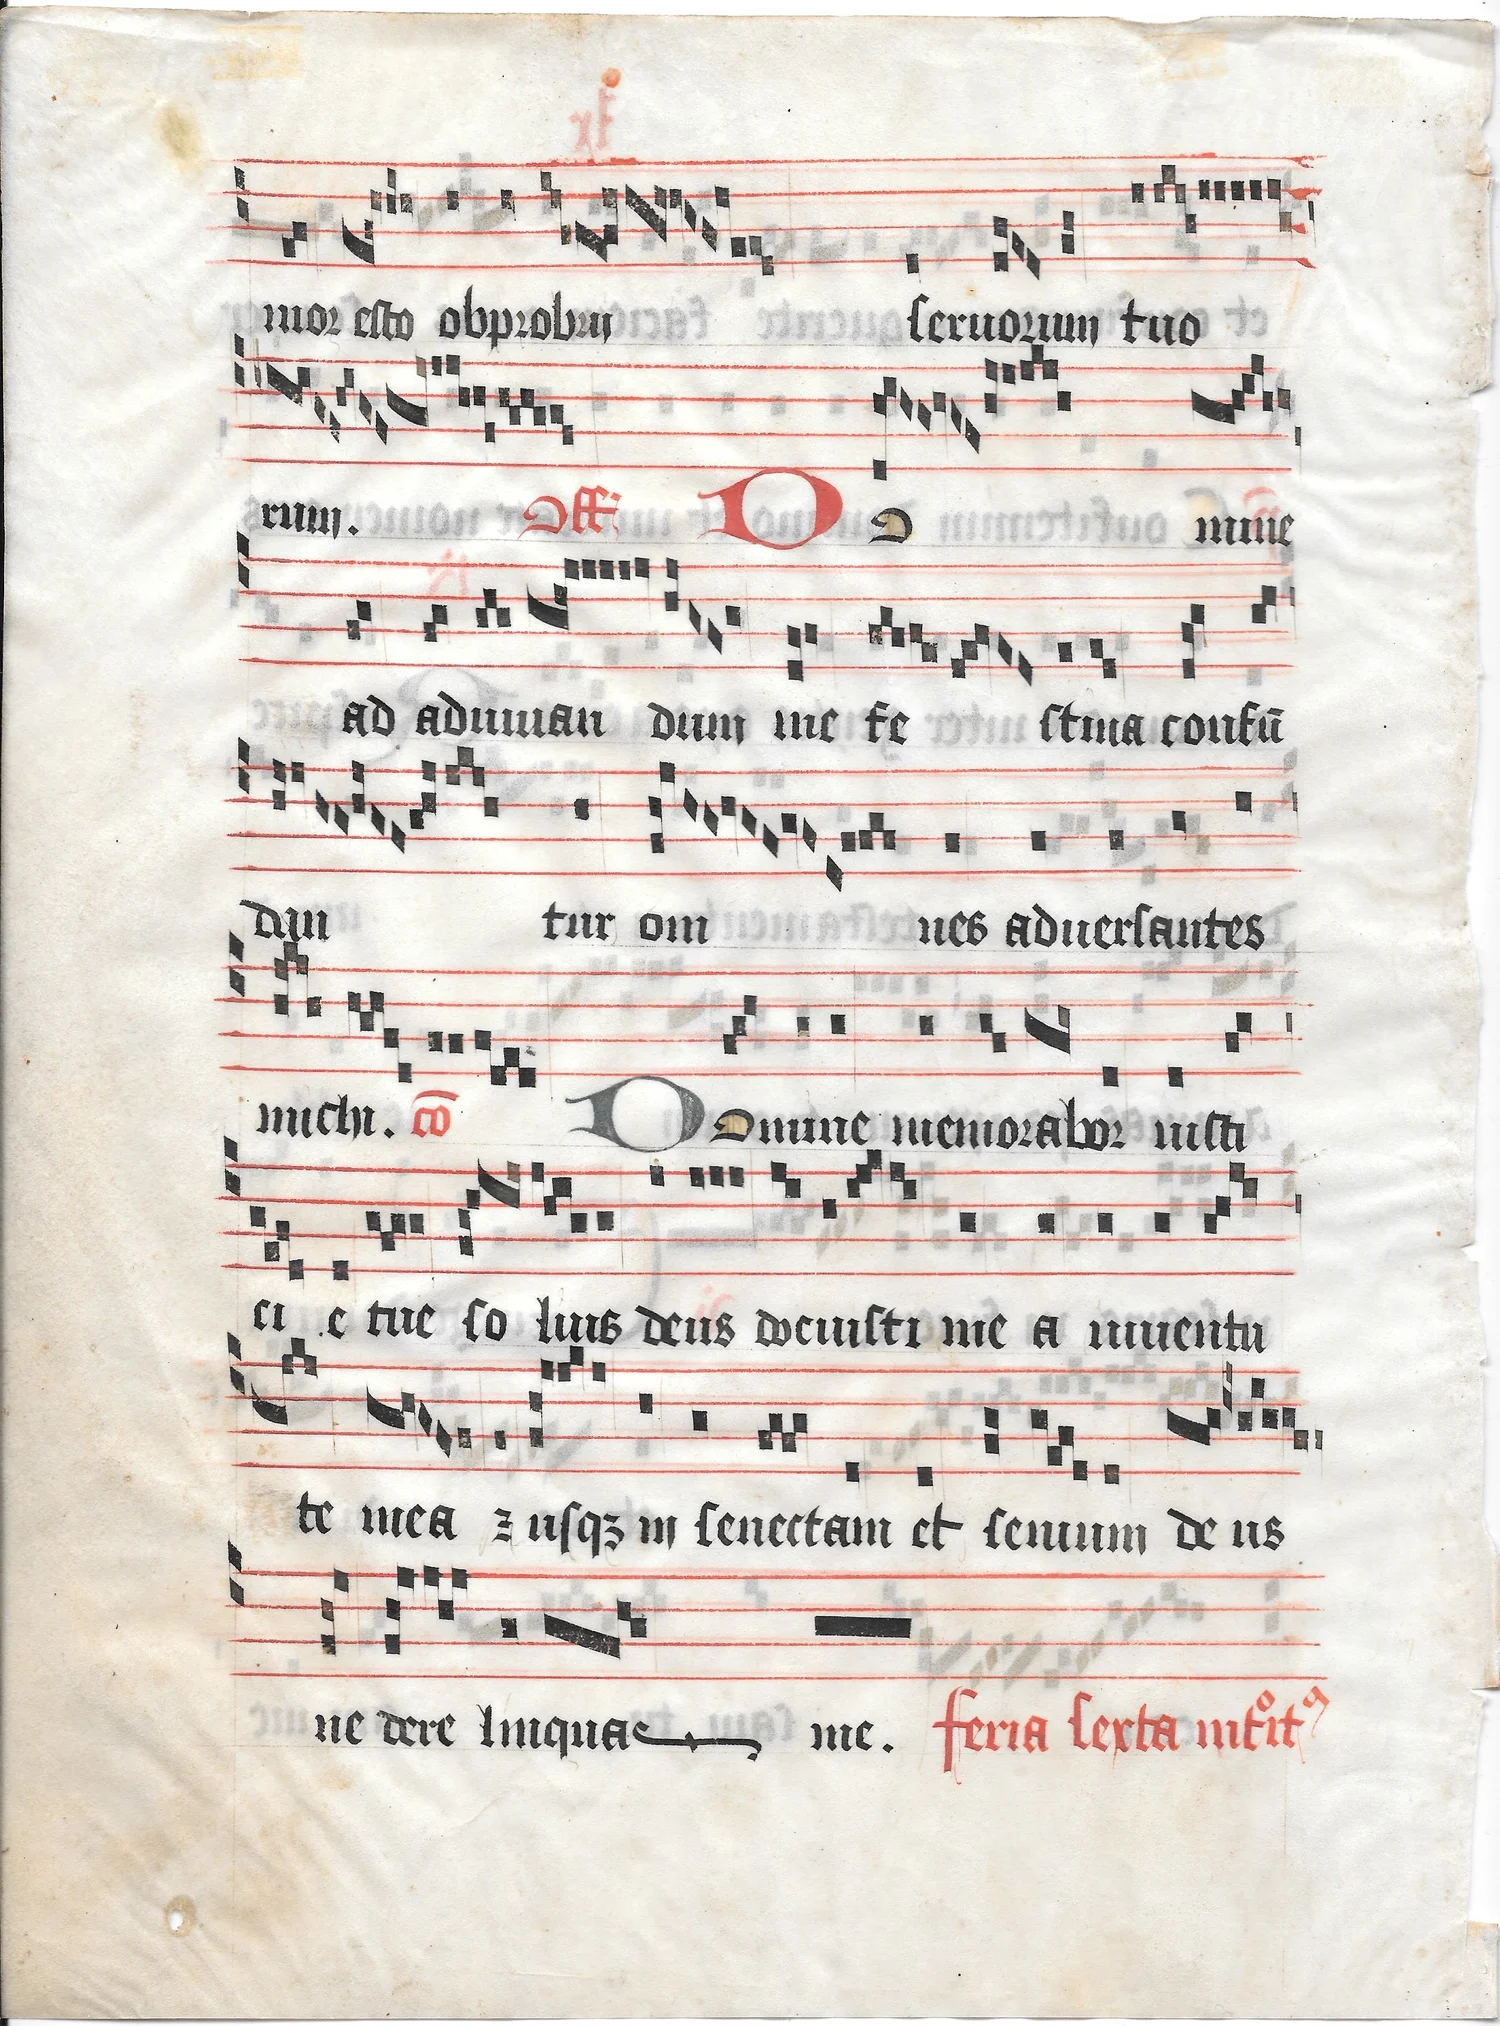 mor esto obprobrii seruorum tuo
rum. Off. D Domine
ad adiuuan dum me fe stina confū
dan tur om nes aduersantes
michi. cō Domine memorabor iusti
ci e tue so lius deus docuisti me a iuuentu
te mea ⁊ usqꝫ in senectam et senium de us
ne dere linquas me. feria sexta